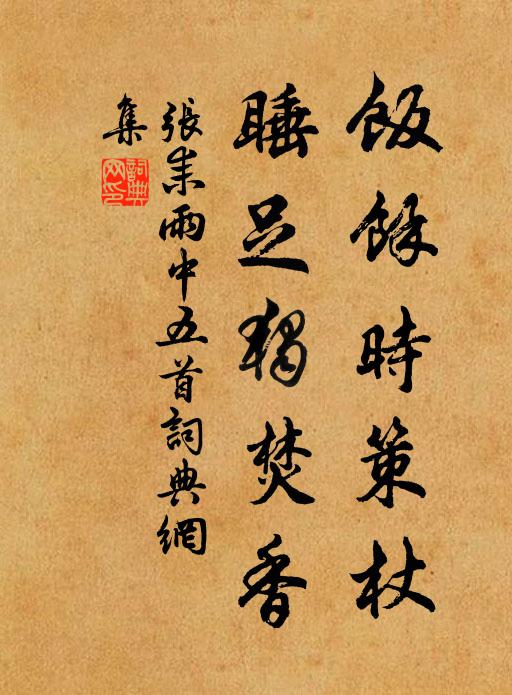 飯餘時策杖
睡足獨焚香
張耒雨中五首詞典網
集
詞典
网印